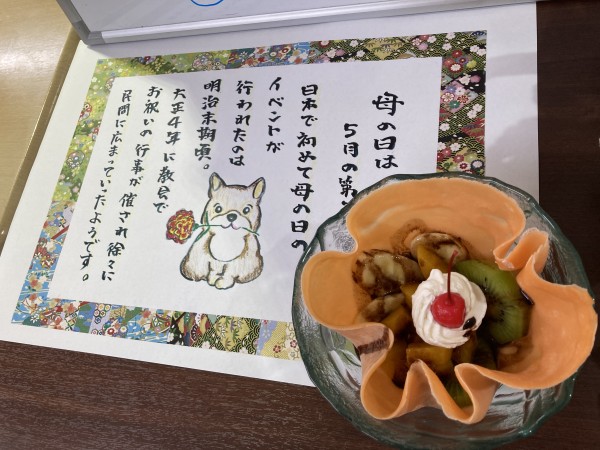 母の日は
5月の第
日本で初めて母の日の
イベントが
行われたのは
明治末期頃。
大正4年に教会で
お祝いの行事が催され徐々に
民間に広まっていったようです。